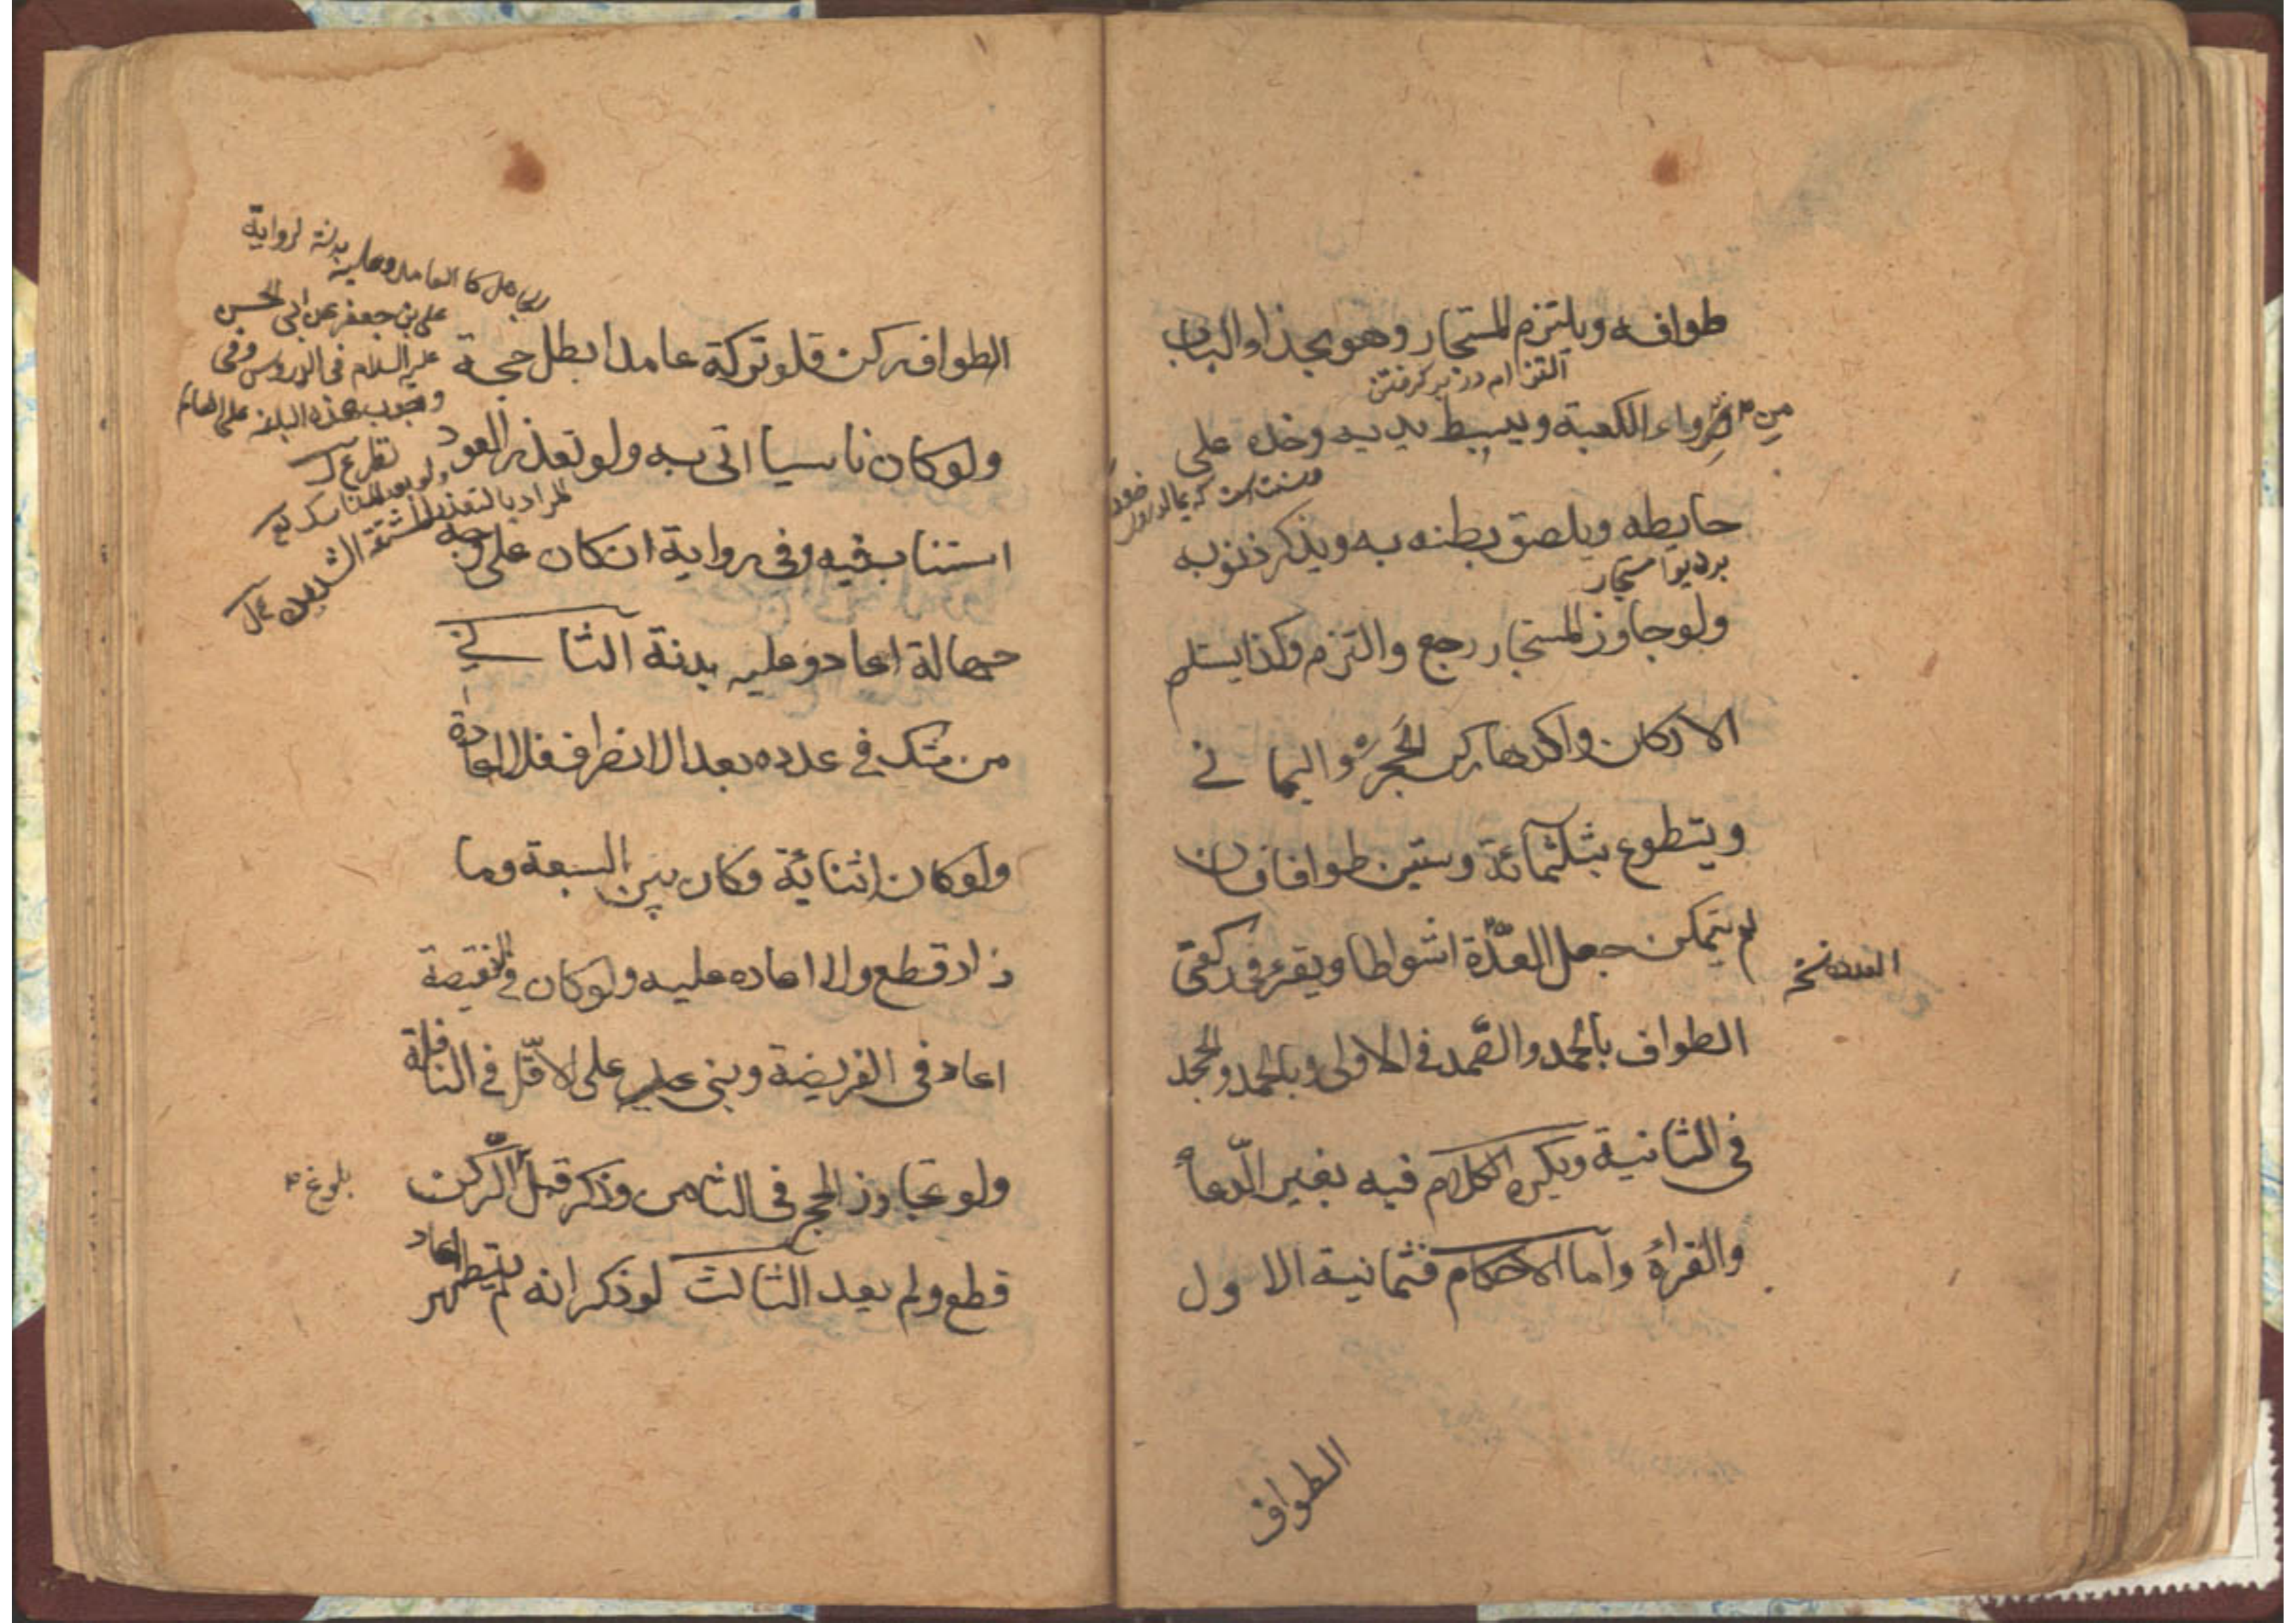 طوافه ويلتزم المستجار وهو بحذاء الباب
التزام در بر کرفتن
من وراء الكعبة ويبسط يديه وخده على
حايطه ويلصق بطنه به ويذكر ذنوبه
بر ديوار مستجار
ولو جاوز المستجار رجع والتزم وكذا يستلم
الاركان واكدها ركن الحجر واليماني
ويتطوع بثلثمائة وستين طوافا فان
لم يتمكن جعل العدّة اشواطا ويقرء في ركعتي
العدد نخ
الطواف بالحمد والصّمد في الاولى وبالحمد والجحد
في الثانية ويكره الكلام فيه بغير الدّعاء
والقراءة وأما الاحكام فثمانية الاول
الطواف
الجاهل كا العامد وعليه بدنة لرواية
علي بن جعفر عن ابي الحسن
عليه السلام في الدروس وفي
وجوب هذه البدنة على العالم
الطواف ركن فلو تركه عامدا بطل حجة
ولو كان ناسيا اتى به ولو تعذر العود
المراد بالتعذر المشقة الشديدة
استناب فيه وفي رواية ان كان على وجه
جهالة اعاد وعليه بدنة الثاني
من شك في عدده بعد الانصراف فلا اعادة
ولو كان اثنائة وكان بين السبعة وما
زاد قطع ولا اعاده عليه ولو كان في النقيصة
اعاد في الفريضة وبنى عليه على الاقّل في النافلة
ولو تجاوز الحجر في الثامن وذكر قبل الرّكن
بلوغ
قطع ولم يعد الثالث لو ذكر انه لم يتطهر اعاد